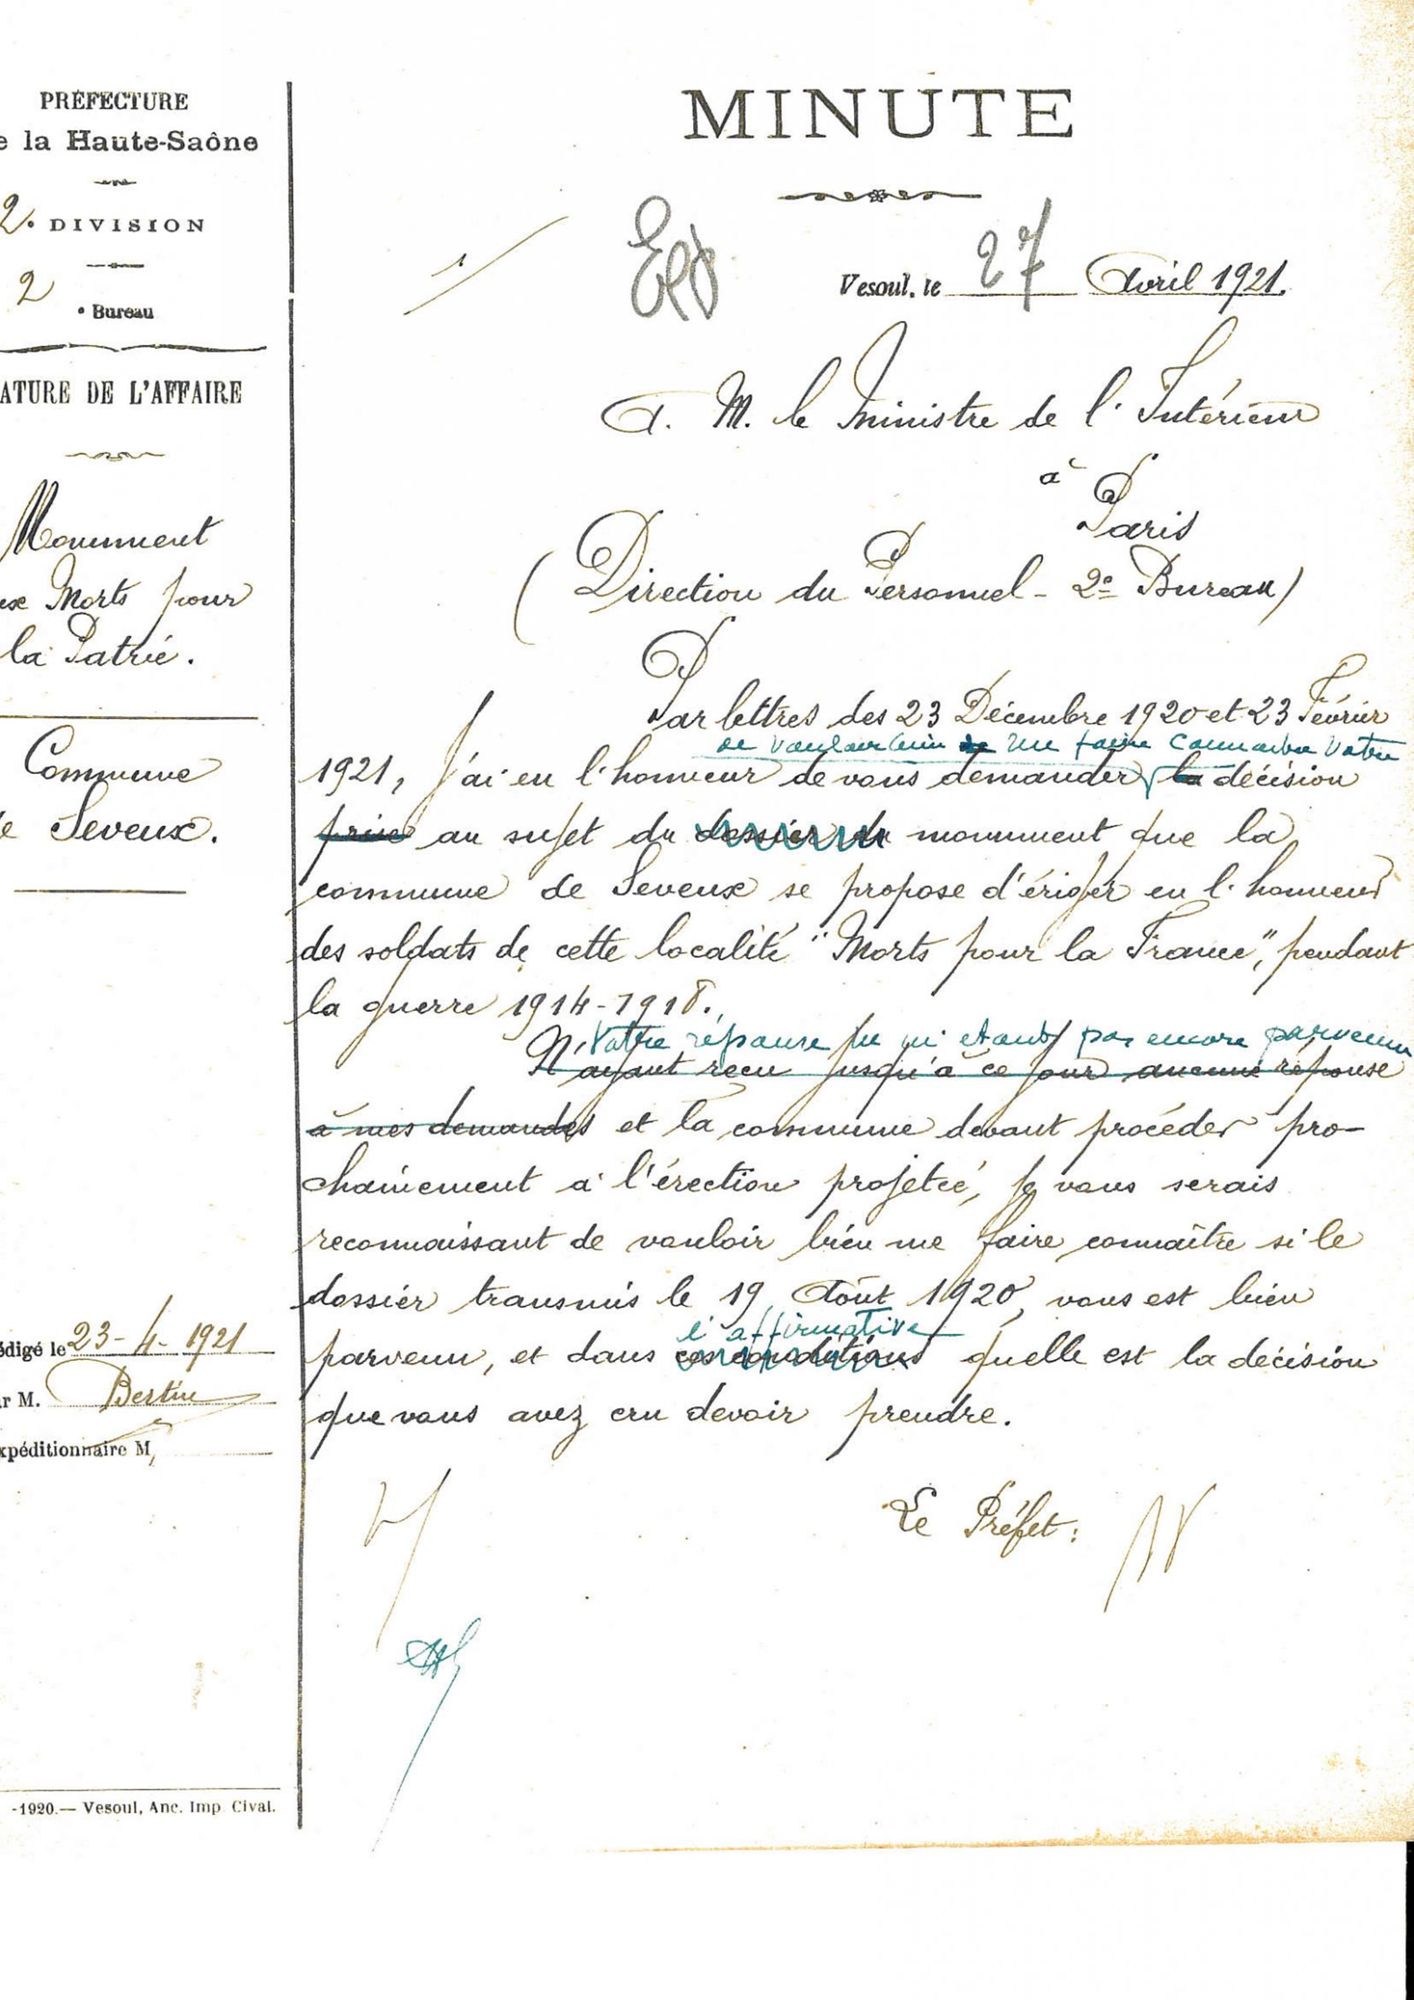 PRÉFECTURE
e la Haute-Saône
2e DIVISION
2
e Bureau
ATURE DE L'AFFAIRE
Monument
ux Morts pour
la Patrie.
Commune
e Seveux.
édigé le 23-4-1921
r M. Bertin
xpéditionnaire M.
-1920.— Vesoul, Anc. Imp. Cival.
MINUTE
Vesoul, le 27 Avril 1921.
A. M. le Ministre de l'Intérieur
à
Paris
(Direction du Personnel - 2e Bureau)
Par lettres des 23 Décembre 1920 et 23 Février
de vouloir bien de me faire connaitre votre
1921, j'ai eu l'honneur de vous demander la décision
prise au sujet du dossier du monument que la
commune de Seveux se propose d'ériger en l'honneur
des soldats de cette localité "Morts pour la France", pendant
la guerre 1914-1918.
Votre réponse ne m'étant pas encore parvenu
N'ayant reçu jusqu'à ce jour aucune réponse
à mes demandes et la commune devant procéder pro-
chainement à l'érection projetée, je vous serais
reconnaissant de vouloir bien me faire connaître si le
dossier transmis le 19 Août 1920, vous est bien
l'affirmative
parvenu, et dans ces conditions quelle est la décision
que vous avez cru devoir prendre.
Le Préfet: